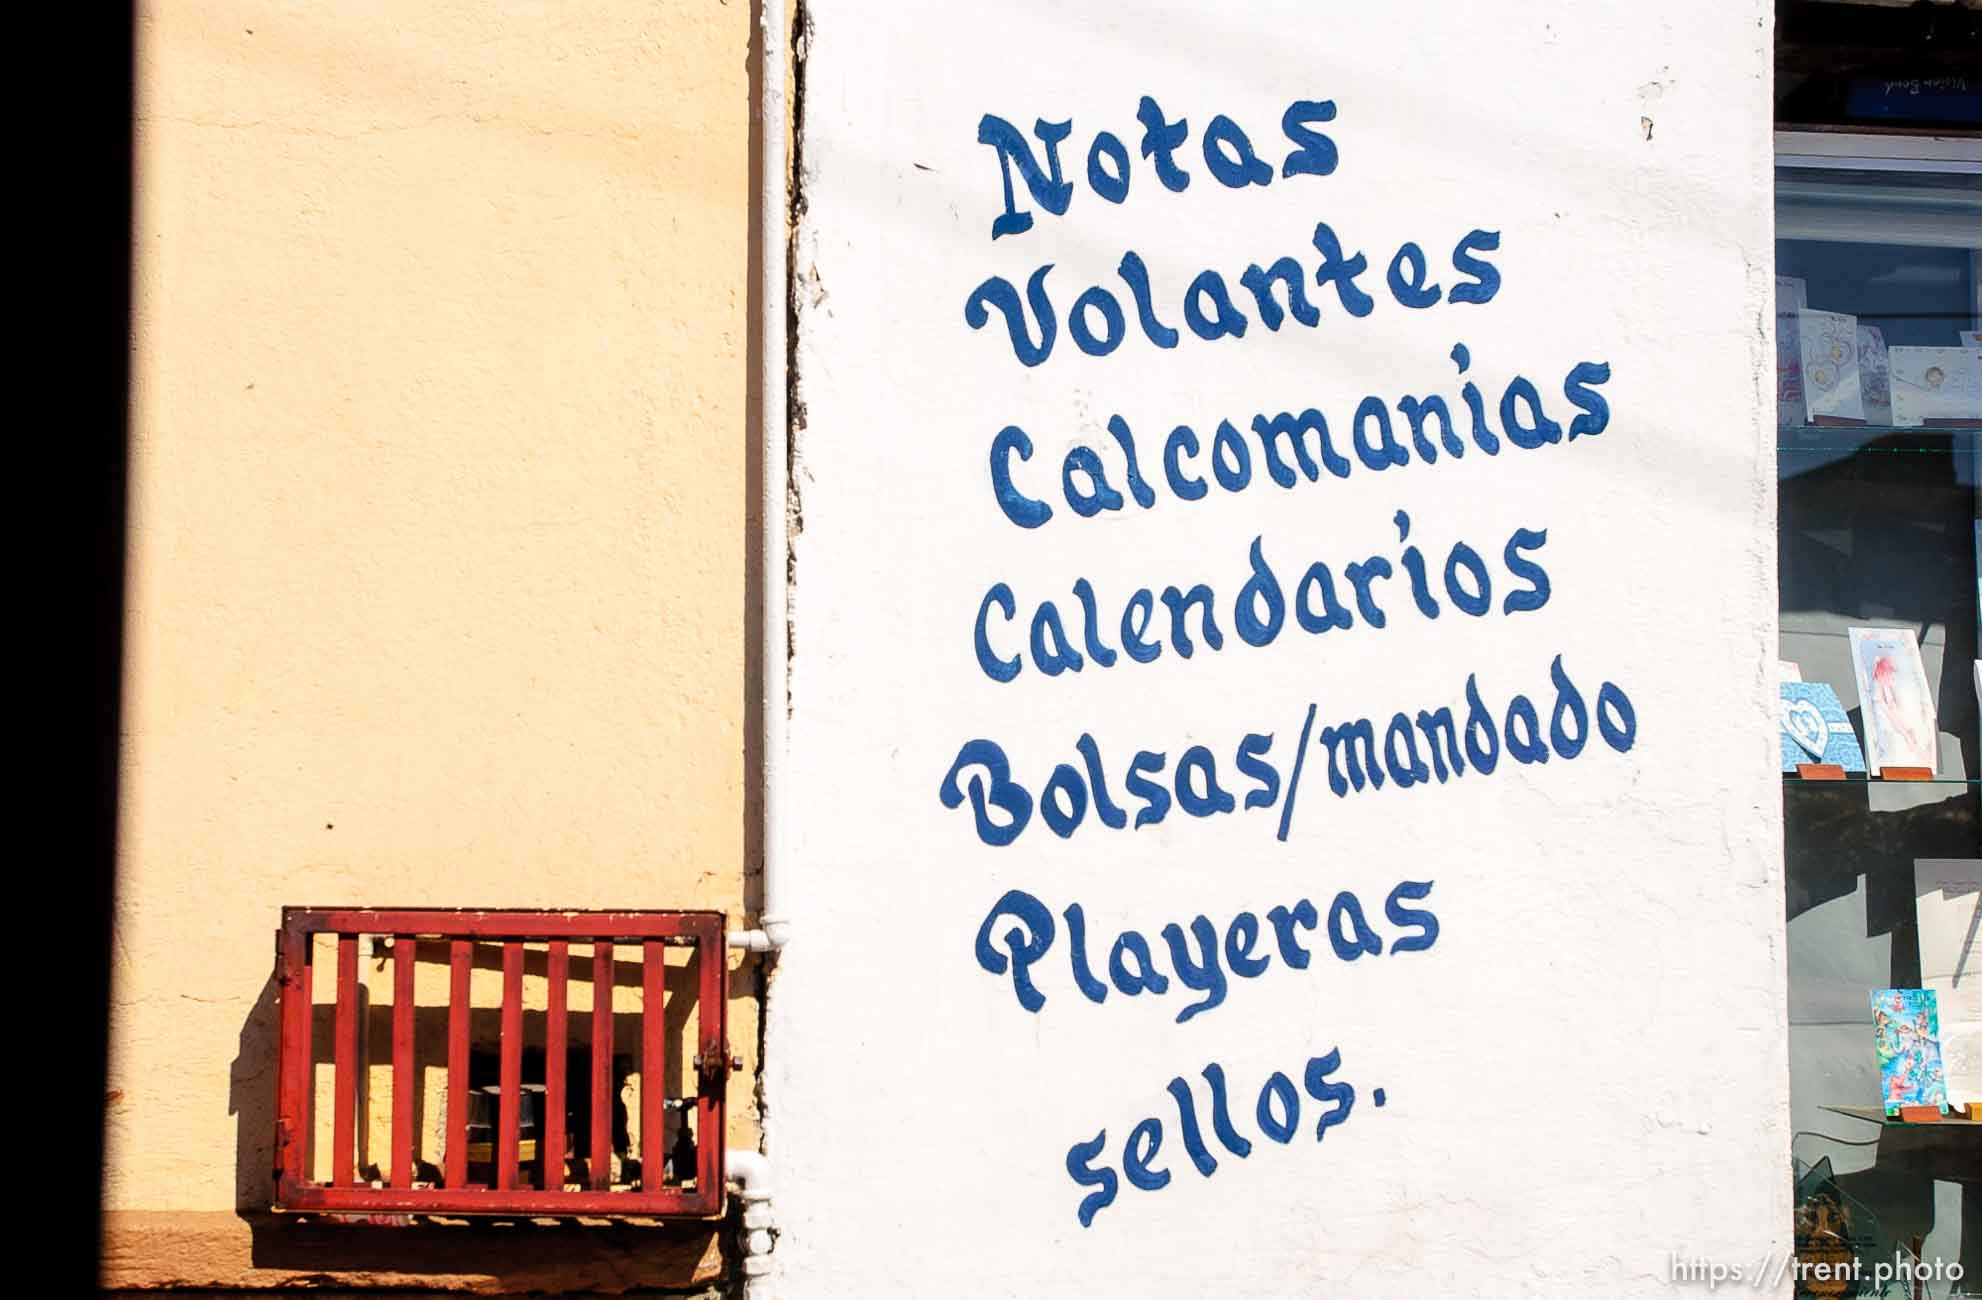 Notas
Volantes
Calcomanías
Calendarios
Bolsas/mandado
Playeras
sellos.
https://trent.photo